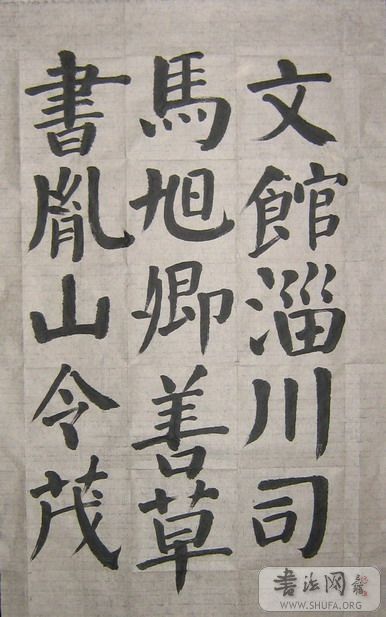 文館淄川司
馬旭卿善草
書胤山令茂
書法网
WWW.SHUFA.ORG